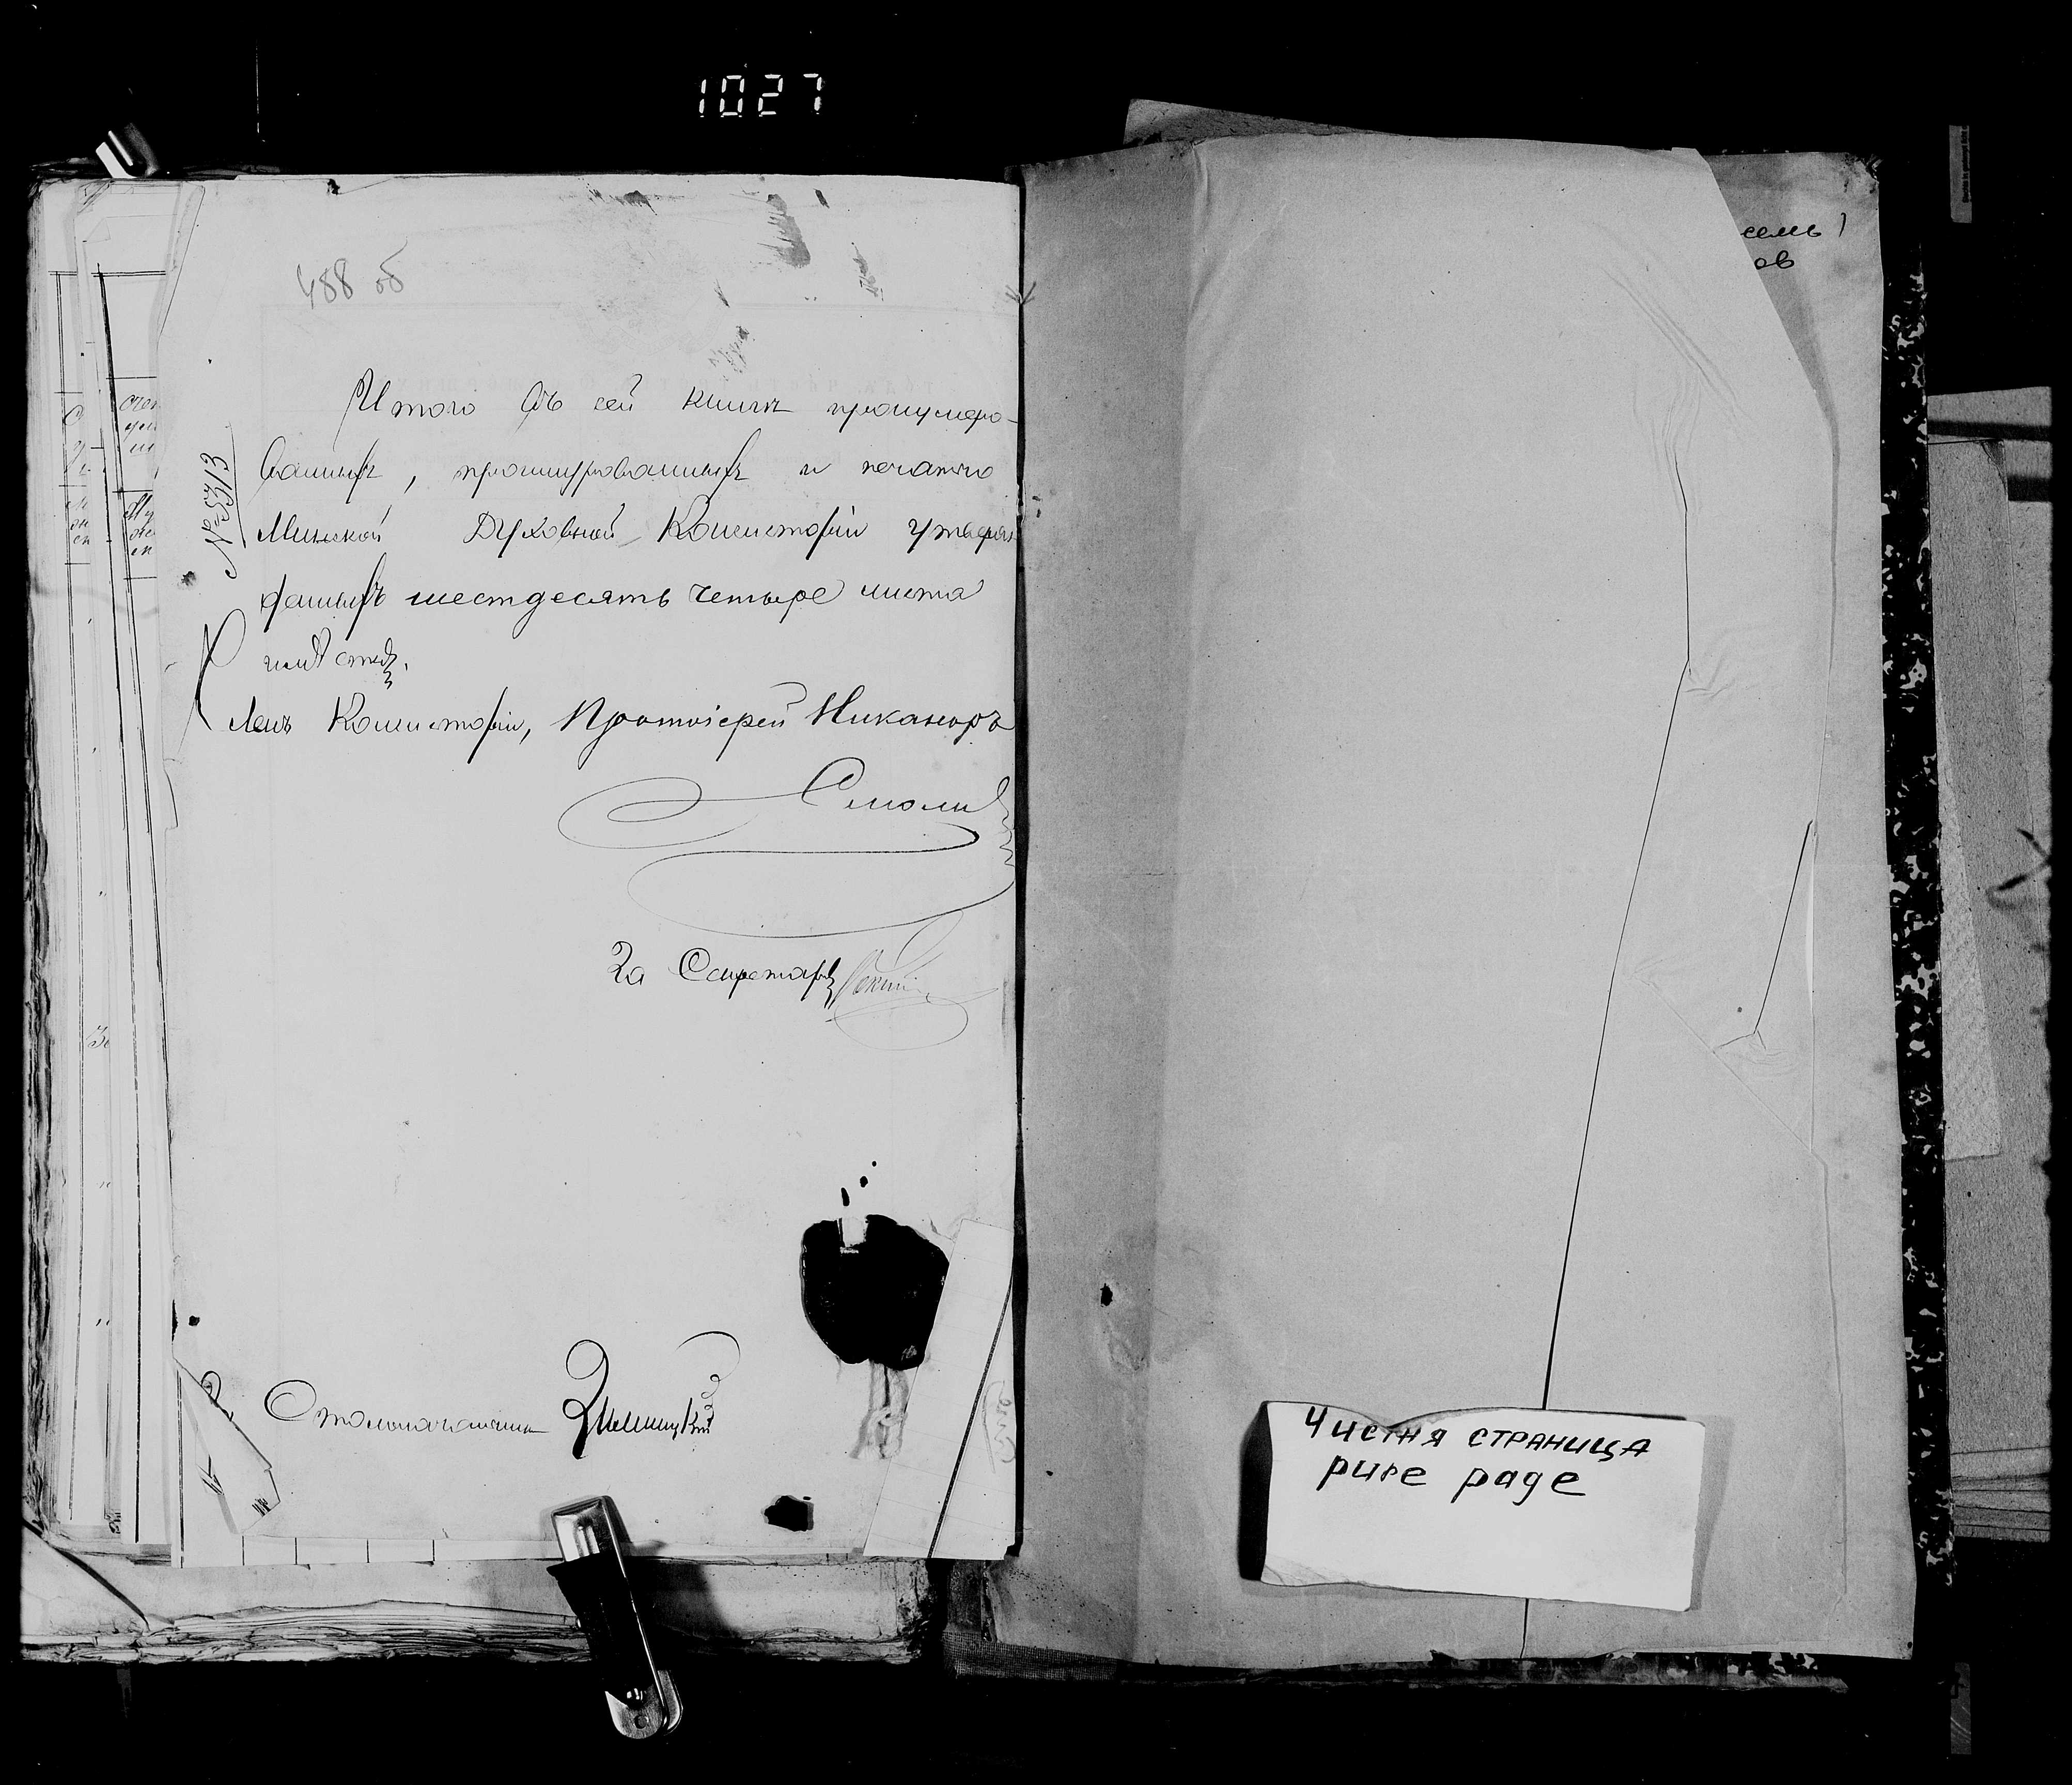 1027
488 об
Итого въ сей книгѣ пронумеро-
ванныхъ, прошнурованныхъ и печатью
Минской Духовной Консисторіи утверж
денныхъ шестдесятъ четыре листа
№ 5313
Членъ Консисторіи, Протоіерей Никаноръ
Смолич
За Секретаря
Столоначальникъ
семь
ов
Чистая страница
pure page